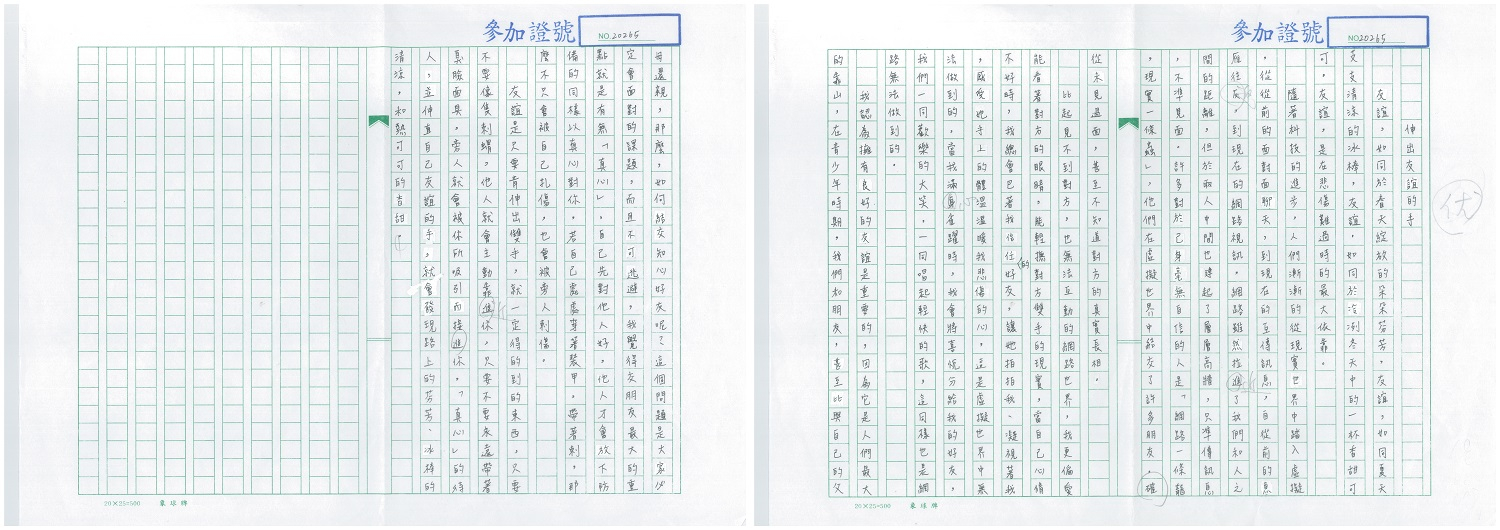 參加證號
NO.20265
伸出友誼的手
友誼，如同於春天綻放的朵朵芬芳，友誼，如同夏天
支支清涼的冰棒，友誼，如同於冷冽冬天中的一杯香甜可
可，友誼，是在悲傷難過時的最大依靠。
隨著科技的進步，人們漸漸的從現實世界中踏入虛擬
，從從前的面對面聊天，到現在的互傳訊息，自從前的魚
雁往返，到現在的網路視訊。網路雖然拉進了我們和人之
間的距離，但於兩人中間也建起了層層高牆，只準傳訊息
，不準見面。許多對於己身毫無自信的人是「網路一條龍
，現實一條蟲」，他們在虛擬世界中結交了許多朋友，確
從未見過面，甚至不知道對方的真實長相。
比起見不到對方，也無法互動的網路世界，我更偏愛
能看著對方的眼睛，能輕撫對方雙手的現實，當自己心情
不好時，我總會巴著我信任的好友，讓她拍拍我、凝視著我
，感受她手上的體溫溫暖我悲傷的心，這是虛擬世界中無
法做到的，當我滿臉雀躍時，我會將喜悅分給我的好友，
我們一同歡樂的大笑，一同唱起輕快的歌，這同樣也是網
路無法做到的。
我認為擁有良好的友誼是重要的，因為它是人們最大
的靠山，在青少年時期，我們和朋友，甚至比與自己的父
优
20×25=500 象球牌
參加證號
NO.20265
母還親，那麼，如何結交知心好友呢？這個問題是大家必
定會面對的課題，而且不可逃避，我覺得交朋友最大的重
點就是有無「真心」。自己先對他人好，他人才會放下防
備的同樣以真心對你。若自己處處穿著裝甲，帶著刺，那
麼不只會被自己扎傷，也會被旁人刺傷。
友誼是只要肯伸出雙手，就一定得的到的東西，只要
不要像隻刺蝟，他人就會主動靠進你，只要不要永遠帶著
臉面具，旁人就會被你所吸引而接進你。「真心」的待
人，並伸直自己友誼的手，就會發現路上的芬芳、冰棒的
清涼，和熱可可的香甜！
20×25=500 象球牌